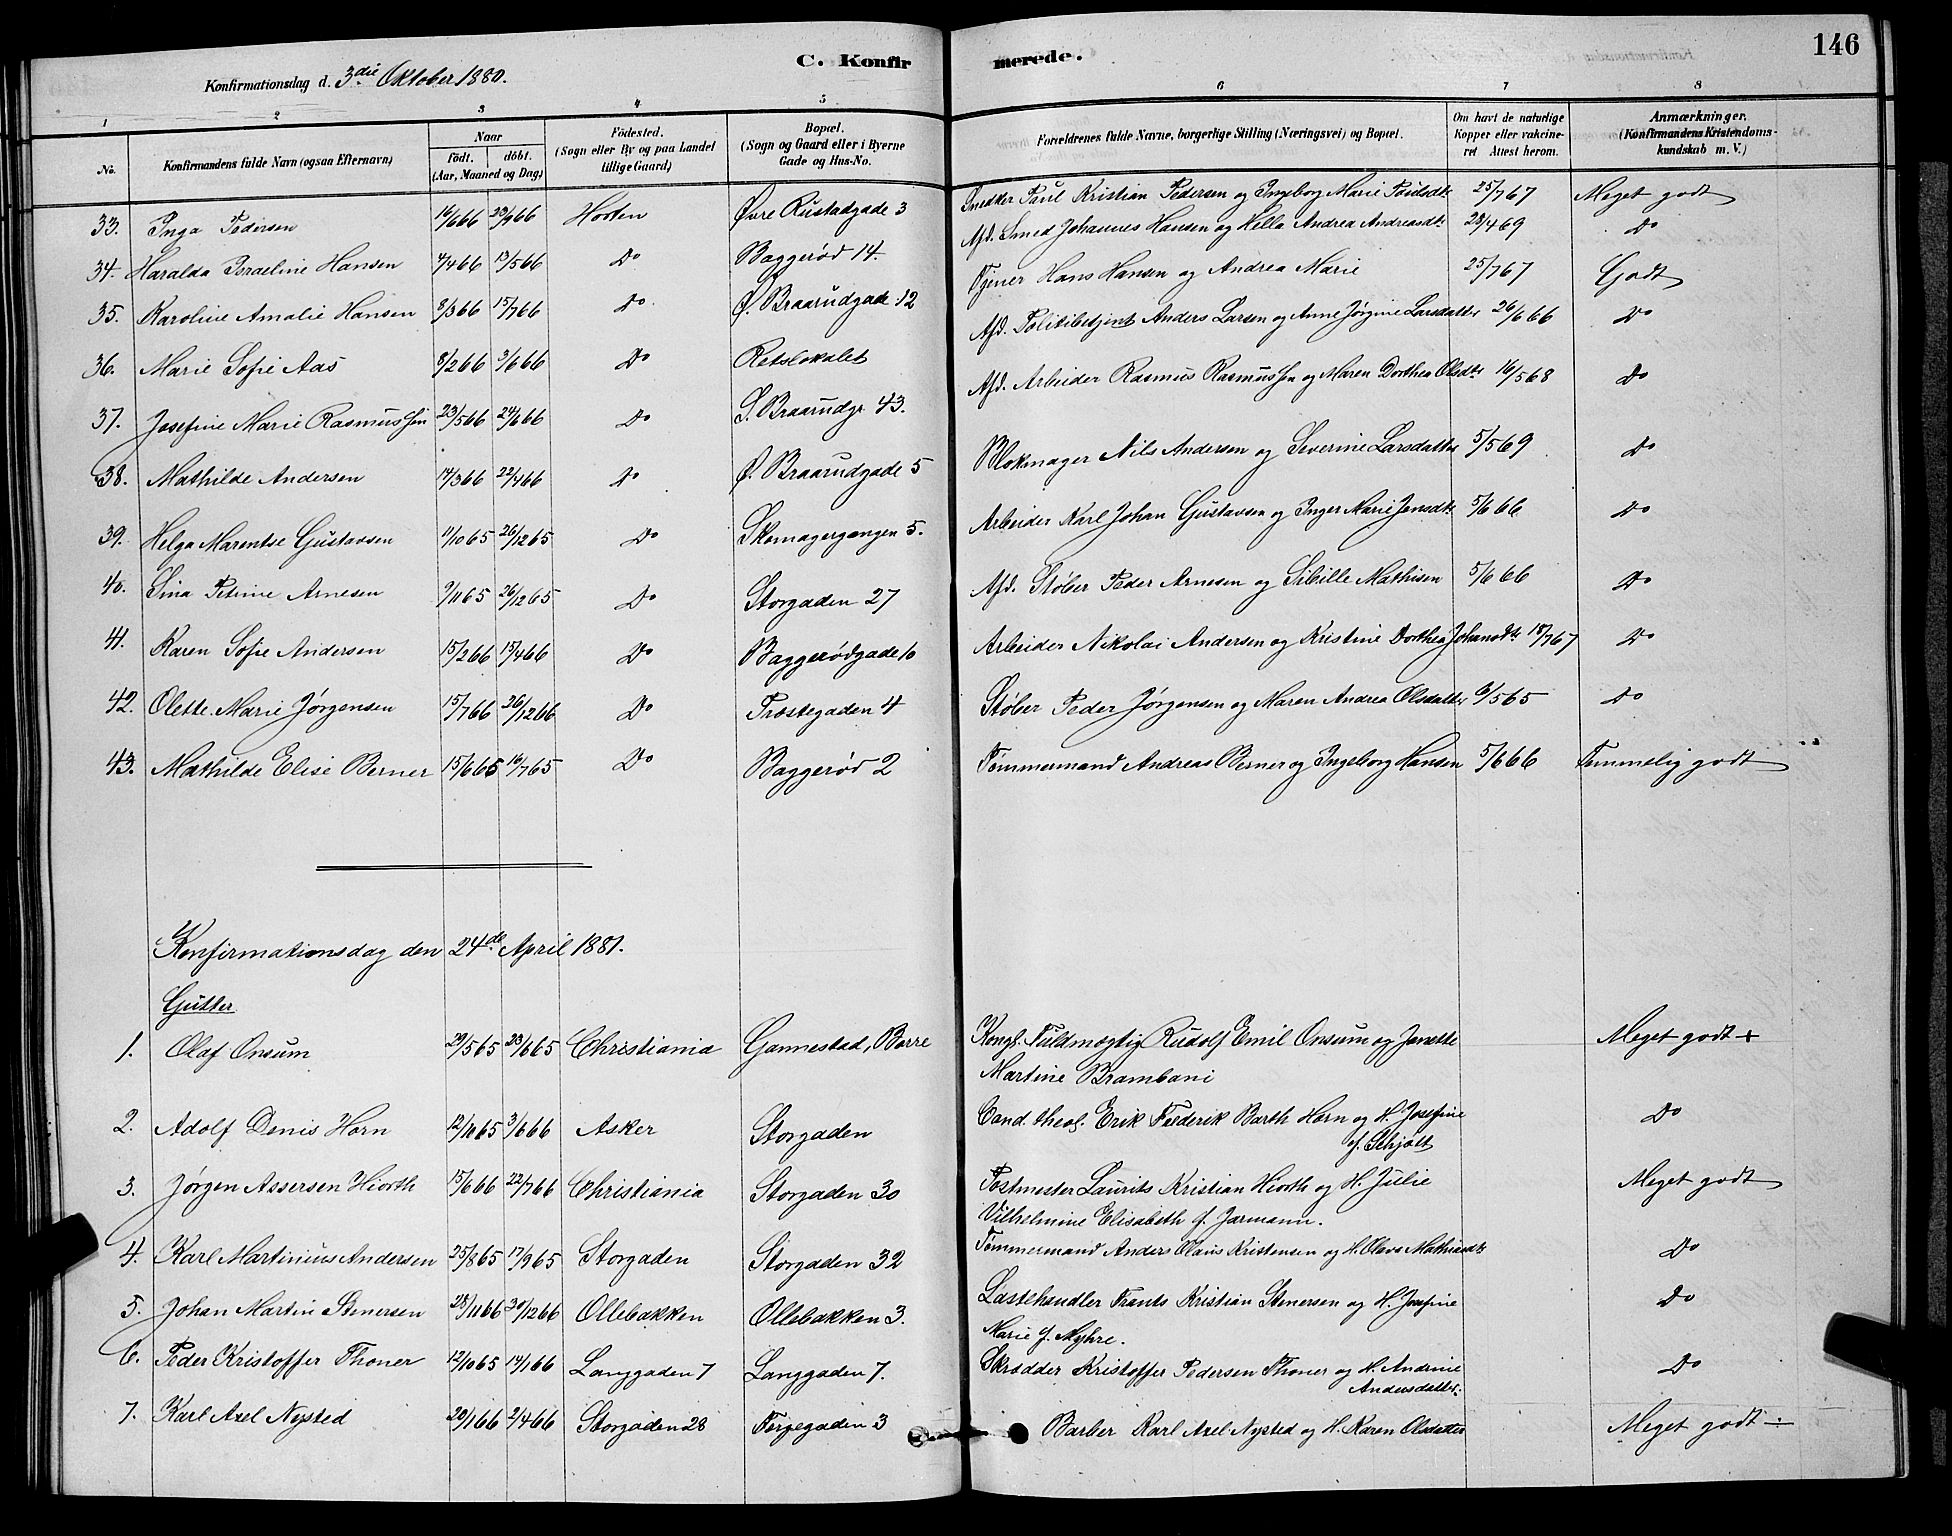 146
C. Konfirmerede.
Konfirmationsdag d. 3die Oktober 1880.
1 2 3 4 5 6 7 8
No. Konfirmandens fulde Navn (ogsaa Efternavn) Naar födt. döbt. (Aar, Maaned og Dag) Födested. (Sogn eller By og paa Landet tillige Gaard) Bopæl. (Sogn og Gaard eller i Byerne Gade og Hus-No. Forældrenes fulde Navne, borgerlige Stilling (Næringsvei) og Bopæl. Om havt de naturlige Kopper eller vakcineret Attest herom. Anmærkninger. (Konfirmandens Kristendomskundskab m. V.)
33. Inga Pedersen 16/6 66 23/9 66 Horten Øvre Rustadgade 3 Snedker Paul Kristian Pedersen og Ingeborg Marie Paulsdtr 25/7 67 Meget godt
34. Haralda Israeline Hansen 4/4 66 13/5 66 Do Baggerød 14. Afd. Smed Johannes Hansen og Hella Andrea Andreasdtr 28/4 69 Do
35. Karoline Amalie Hansen 8/3 66 15/7 66 Do Ø. Braarudgade 12 Tjener Hans Hansen og Andrea Marie 25/7 67 Godt
36. Marie Sofie Aas 8/2 66 3/6 66 Do Retslokalet Afd. Politibetjent Anders Larsen og Anne Jørgine Larsdatter 26/6 66 Do
37. Josefine Marie Rasmussen 23/5 66 24/6 66 Do S. Braarudgr. 43. Afd. Arbeider Rasmus Rasmussen og Maren Dorthea Olsdtr 16/5 68 Do
38. Mathilde Andersen 14/3 66 22/4 66 Do Ø. Braarudgade 5 Blokmager Nils Andersen og Severine Larsdatter 5/5 69 Do
39. Helga Marentse Gustavsen 11/10 65 26/12 65 Do Skomagergangen 5. Arbeider Karl Johan Gustavsen og Inger Marie Jensdtr 5/6 66 Do
40. Sina Petrine Arnesen 9/11 65 26/12 65 Do Storgaden 27 Afd. Støber Peder Arnesen og Sibille Mathisen 5/6 66 Do
41. Karen Sofie Andersen 15/2 66 15/4 66 Do Baggerødgade 10 Arbeider Nikolai Andersen og Kristine Dorthea Johansdtr 18/7 67 Do
42. Olette Marie Jørgensen 15/7 66 26/12 66 Do Trostegaden 4 Støber Peder Jørgensen og Maren Andrea Olsdatter 6/5 65 Do
43. Mathilde Elise Berner 15/6 65 16/7 65 Do Baggerød 2 Tømmermand Andreas Berner og Ingeborg Hansen 5/6 66 Temmelig godt
Konfirmationsdag den 24de April 1881.
Gutter
1. Olaf Onsum 29/5 65 23/6 65 Christiania Gannestad, Borre Kongl. Fuldmægtig Rudolf Emil Onsum og Janette Meget godt +
Martine Brambani
2. Adolf Denis Horn 12/11 65 3/6 66 Asker Storgaden Cand. theol. Erik Frederik Barth Horn og H. Josefine Do
f. Schjøtt
3. Jørgen Assersen Hiorth 15/6 66 22/7 66 Christiania Storgaden 30 Postmester Laurits Kristian Hiorth og H. Julie Meget godt
Vilhelmine Elisabeth f. Jarmann.
4. Karl Martinius Andersen 25/8 65 17/9 65 Storgaden Storgaden 32 Tømmermand Anders Olaus Kristensen og H. Olava Mathiasdtr Do
5. Johan Martin Stenersen 28/11 66 30/12 66 Ollebakken Ollebakken 3. Lastehandler Frants Kristian Stenersen og H. Josefine Do
Marie f. Myhre.
6. Peder Kristoffer Thoner 12/10 65 14/1 66 Langgaden 7 Langgaden 7. Skrædder Kristoffer Pedersen Thoner og H. Andrine Do
Andersdatter.
7. Karl Axel Nysted 20/1 66 2/4 66 Storgaden 28 Torjegaden 3 Barber Karl Axel Nysted og H. Karen Olsdatter Meget godt ÷